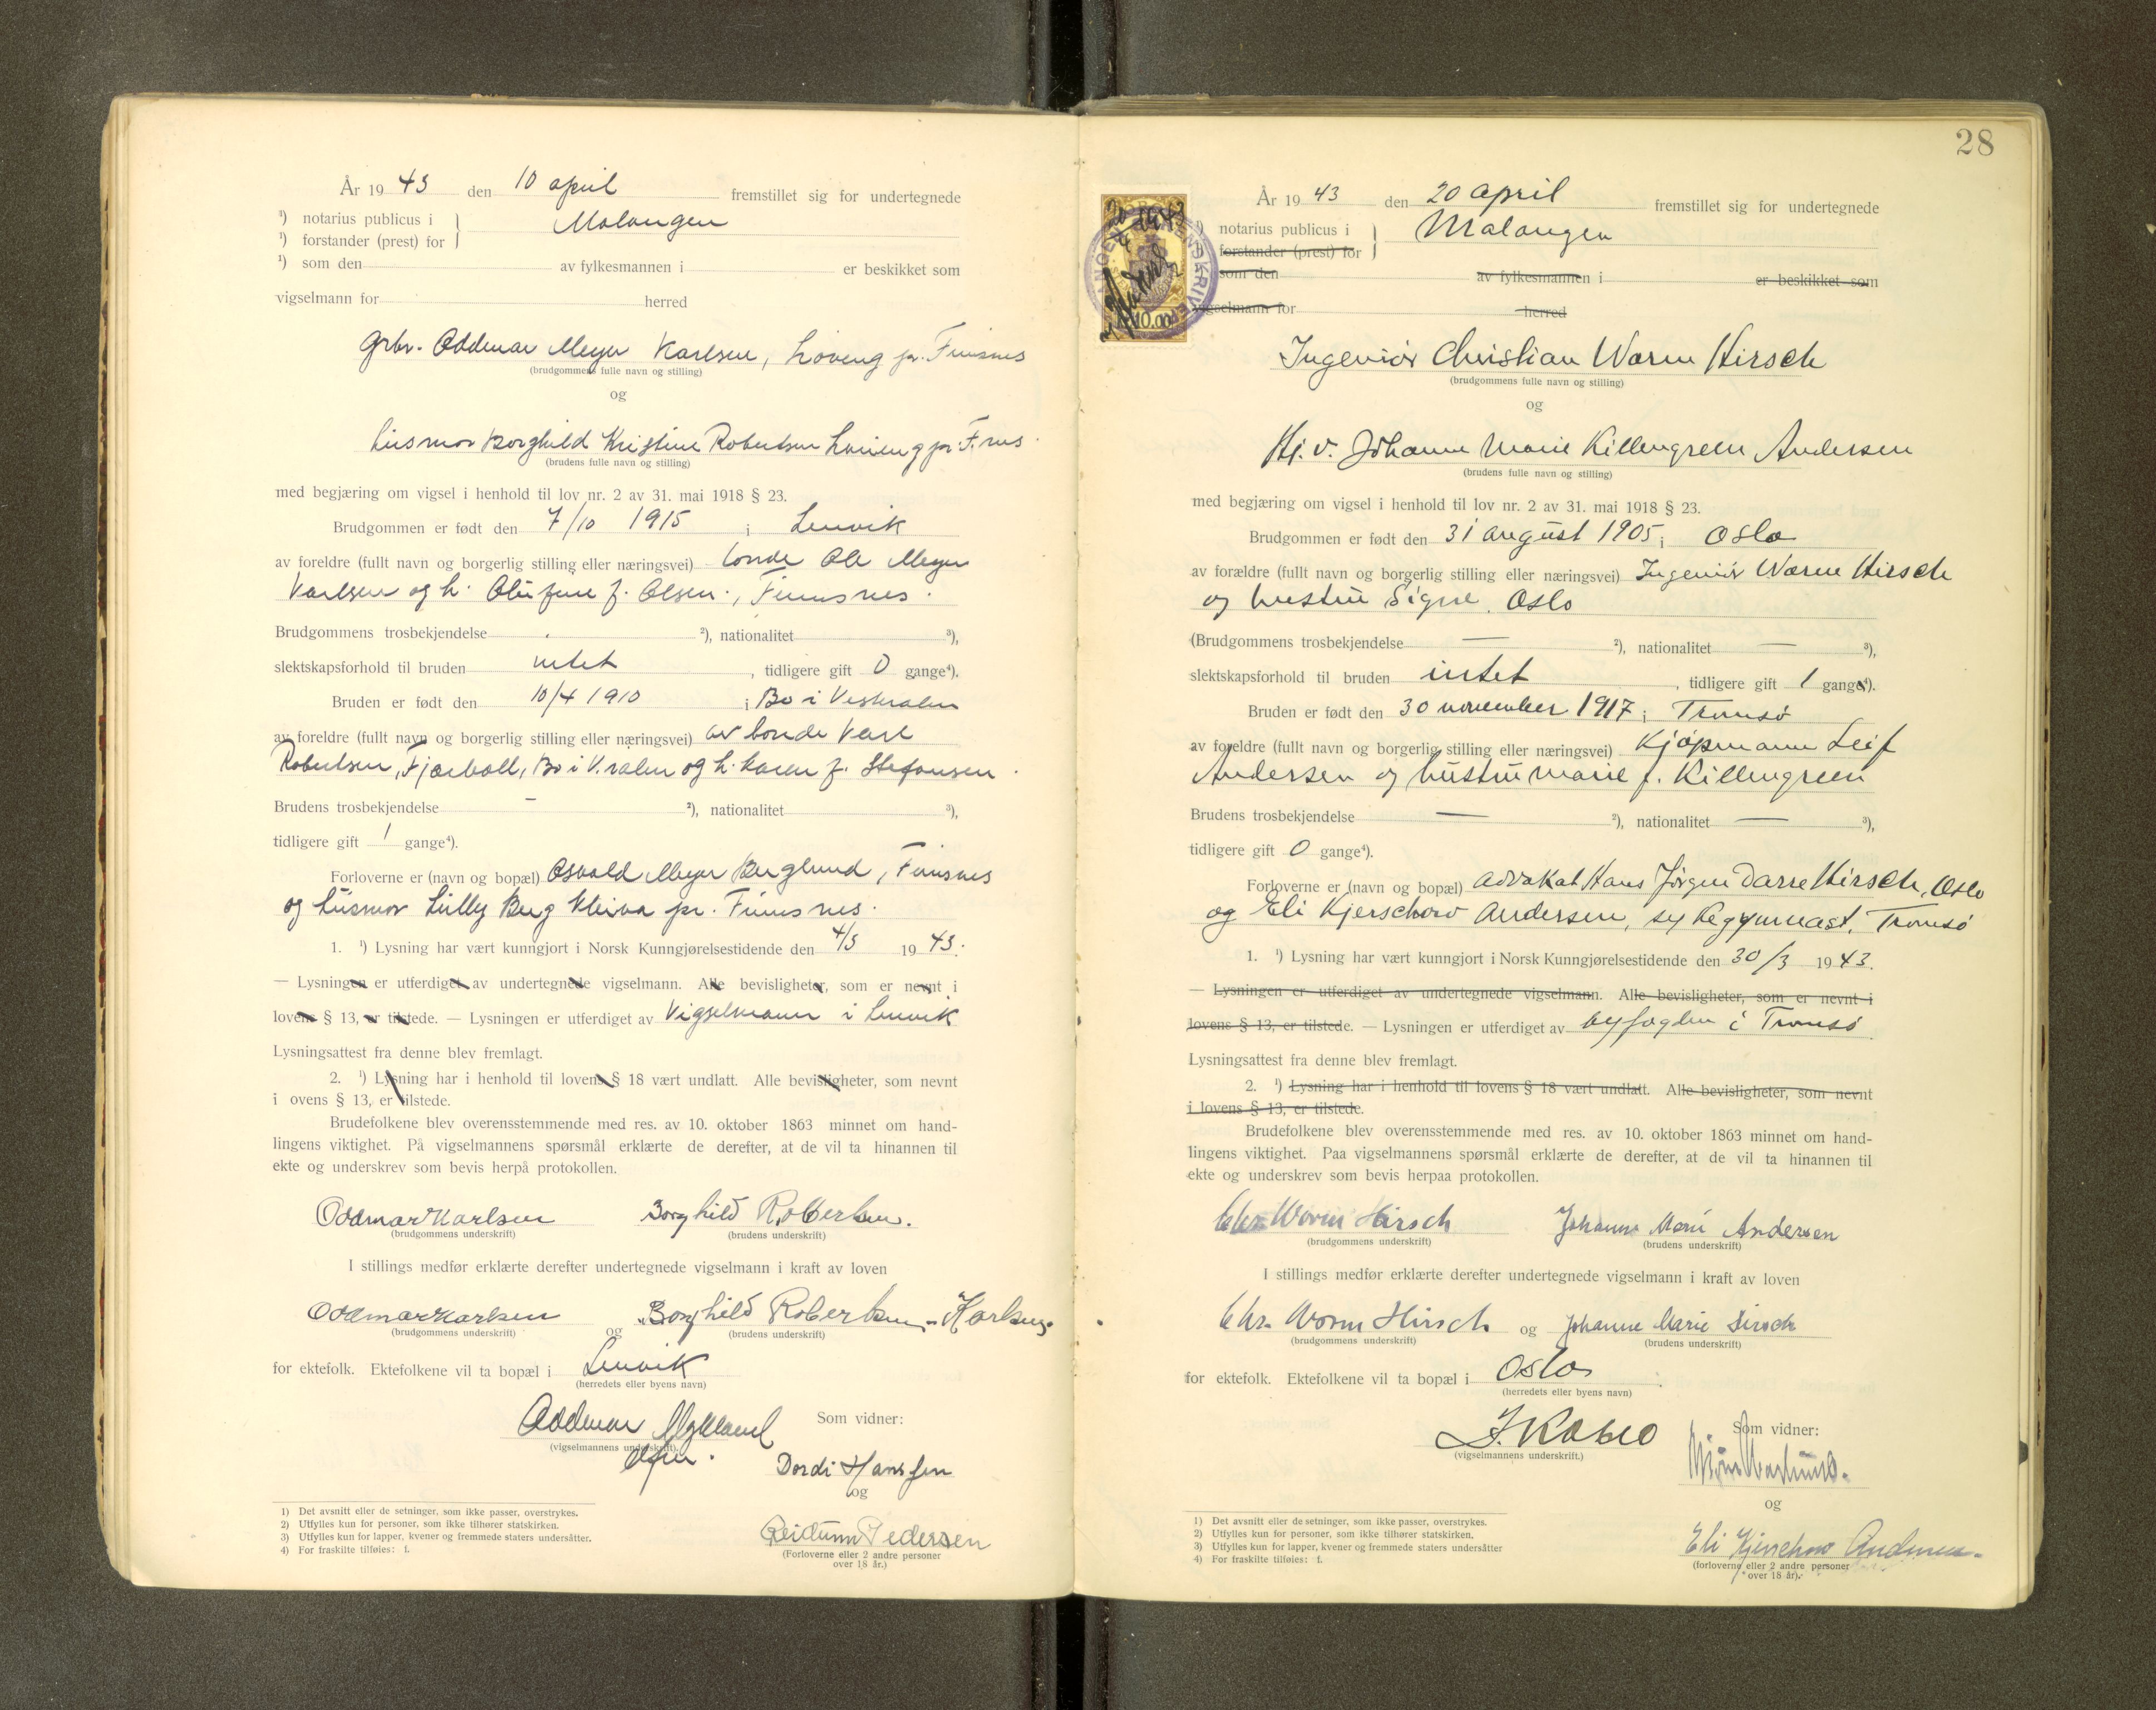 År 1943 den 10 april fremstillet sig for undertegnede
¹) notarius publicus i } Malangen
¹) forstander (prest) for
¹) som den av fylkesmannen i er beskikket som
vigselmann for herred
Grbr. Oddmar Meyer Karlsen, Loveng pr. Finnsnes
(brudgommens fulle navn og stilling)
og
husmor Borghild Kristine Robertsen Loveng pr. F.snes.
(brudens fulle navn og stilling)
med begjæring om vigsel i henhold til lov nr. 2 av 31. mai 1918 § 23.
Brudgommen er født den 7/10 1915 i Lenvik
av foreldre (fullt navn og borgerlig stilling eller næringsvei) bonde Ole Meyer
Karlsen og h. Olufine f. Olsen., Finnsnes.
Brudgommens trosbekjendelse ²), nationalitet ³),
slektskapsforhold til bruden intet, tidligere gift 0 gange⁴).
Bruden er født den 10/4 1910 i Bø i Vesteralen
av foreldre (fullt navn og borgerlig stilling eller næringsvei) av bonde Karl
Robertsen, Fjærvoll, Bø i V.ralen og h. Karen f. Stefansen.
Brudens trosbekjendelse - ²), nationalitet ³),
tidligere gift 1 gange⁴).
Forloverne er (navn og bopæl) Osvald Meyer Berglund, Finnsnes
og husmor Lilly Berg Kleiva pr. Finnsnes.
1. ¹) Lysning har vært kunngjort i Norsk Kunngjørelsestidende den 4/3 1943.
— Lysningen er utferdiget av undertegnede vigselmann. Alle bevisligheter, som er nevnt i
lovens § 13, er tilstede. — Lysningen er utferdiget av Vigselmann i Lenvik
Lysningsattest fra denne blev fremlagt.
2. ¹) Lysning har i henhold til lovens § 18 vært undlatt. Alle bevisligheter, som nevnt
i ovens § 13, er tilstede.
Brudefolkene blev overensstemmende med res. av 10. oktober 1863 minnet om hand-
lingens viktighet. På vigselmannens spørsmål erklærte de derefter, at de vil ta hinannen til
ekte og underskrev som bevis herpå protokollen.
Oddmar Karlsen Borghild Robertsen.
(brudgommens underskrift) (brudens underskrift)
I stillings medfør erklærte derefter undertegnede vigselmann i kraft av loven
Oddmar Karlsen og Borghild Robertsen-Karlsen.
(brudgommens underskrift) (brudens underskrift)
for ektefolk. Ektefolkene vil ta bopæl i Lenvik
(herredets eller byens navn)
Oddmar Mykland Som vidner:
(vigselmannens underskrift).
Dordi Hanssen
og
Reidunn Pedersen
(Forloverne eller 2 andre personer
over 18 år.)
1) Det avsnitt eller de setninger, som ikke passer, overstrykes.
2) Utfylles kun for personer, som ikke tilhører statskirken.
3) Utfylles kun for lapper, kvener og fremmede staters undersåtter.
4) For fraskilte tilføies: f.
28
År 1943 den 20 april fremstillet sig for undertegnede
notarius publicus i } Malangen
forstander (prest) for
som den av fylkesmannen i er beskikket som
vigselmann for herred
10.00
Ingeniør Christian Worm Hirsch
(brudgommens fulle navn og stilling)
og
Hj. v. Johanne Marie Killengreen Andersen
(brudens fulle navn og stilling)
med begjæring om vigsel i henhold til lov nr. 2 av 31. mai 1918 § 23.
Brudgommen er født den 31 august 1905 i Oslo
av forældre (fullt navn og borgerlig stilling eller næringsvei) Ingeniør Worm Hirsch
og hustru Signe, Oslo
(Brudgommens trosbekjendelse — ²), nationalitet — ³),
slektskapsforhold til bruden intet, tidligere gift 1 gange⁴).
Bruden er født den 30 november 1917 i Tromsø
av foreldre (fullt navn og borgerlig stilling eller næringsvei) Kjøpmann Leif
Andersen og hustru Marie f. Killengreen
Brudens trosbekjendelse — ²), nationalitet — ³),
tidligere gift 0 gange⁴).
Forloverne er (navn og bopæl) advokat Hans Jørgen Darre Hirsch, Oslo
og Eli Kjerschow Andersen, sykegymnast, Tromsø
1. ¹) Lysning har vært kunngjort i Norsk Kunngjørelsestidende den 30/3 1943.
— Lysningen er utferdiget av undertegnede vigselmann. Alle bevisligheter, som er nevnt i
lovens § 13, er tilstede. — Lysningen er utferdiget av byfogden i Tromsø
Lysningsattest fra denne blev fremlagt.
2. ¹) Lysning har i henhold til lovens § 18 vært undlatt. Alle bevisligheter, som nevnt
i lovens § 13, er tilstede.
Brudefolkene blev overensstemmende med res. av 10. oktober 1863 minnet om hand-
lingens viktighet. Paa vigselmannens spørsmål erklærte de derefter, at de vil ta hinannen til
ekte og underskrev som bevis herpaa protokollen.
Chr. Worm Hirsch Johanne Marie Andersen
(brudgommens underskrift) (brudens underskrift)
I stillings medfør erklærte derefter undertegnede vigselmann i kraft av loven
Chr. Worm Hirsch og Johanne Marie Hirsch
(brudgommens underskrift) (brudens underskrift)
for ektefolk. Ektefolkene vil ta bopæl i Oslo
(herredets eller byens navn)
Som vidner:
(vigselmannens underskrift.)
og
Eli Kjerschow Andersen.
(forloverne eller 2 andre personer
over 18 år).
1) Det avsnitt eller de setninger, som ikke passer, overstrykes.
2) Utfylles kun for personer, som ikke tilhører statskirken.
3) Utfylles kun for lapper, kvener og fremmede staters undersåtter
4) For fraskilte tilføies: f.